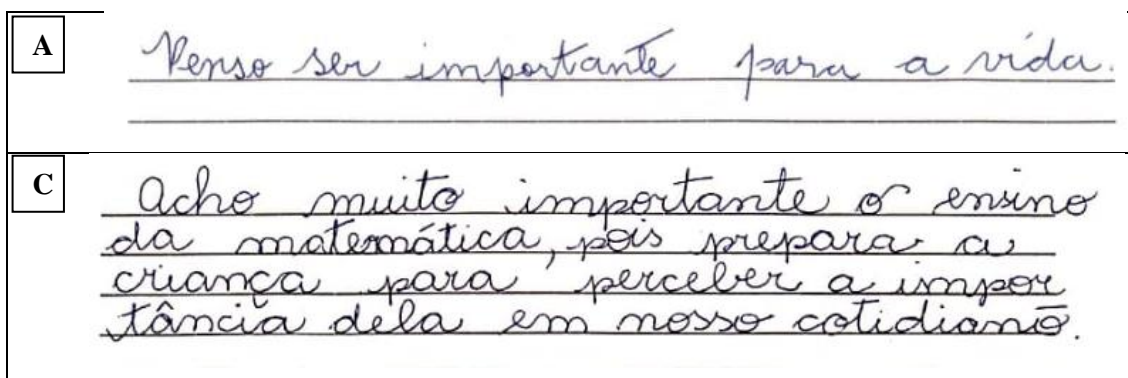 A
Penso ser importante para a vida.
C
Acho muito importante o ensino
da matemática, pois prepara a
criança para perceber a impor
tância dela em nosso cotidiano.